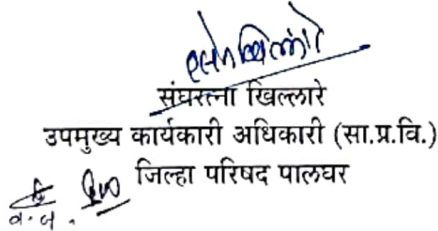 संघरत्ना खिल्लारे
उपमुख्य कार्यकारी अधिकारी (सा.प्र.वि.)
जिल्हा परिषद पालघर